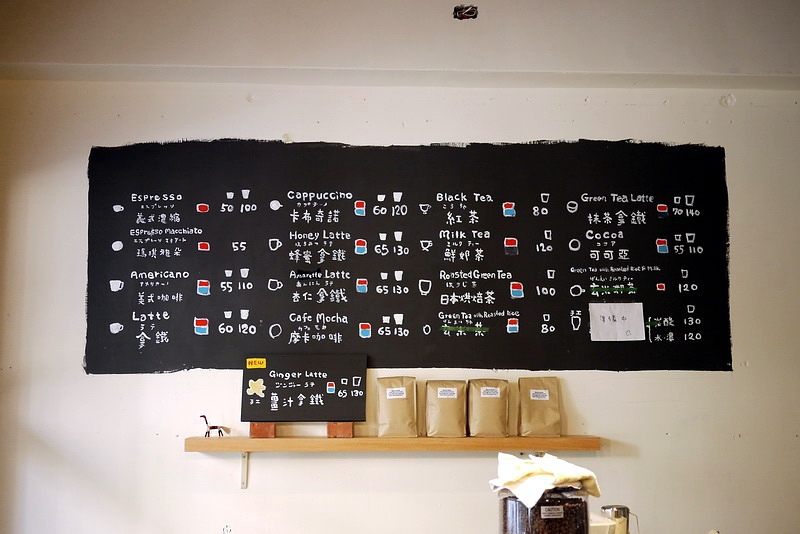 Espresso
エスプレッソ
義式濃縮
50 100
Espresso Macchiato
瑪琪雅朵
55
Americano
アメリカーノ
美式咖啡
55 110
Latte
ラテ
拿鐵
60 120
Cappuccino
カプチーノ
卡布奇諾
60 120
Honey Latte
はちみつ ラテ
蜂蜜拿鐵
65 130
Amaretto Latte
あんにん ラテ
杏仁拿鐵
65 130
Cafe Mocha
カフェ モカ
摩卡咖啡
65 130
Black Tea
こうちゃ
紅茶
80
Milk Tea
ミルクティー
鮮奶茶
120
Roasted Green Tea
ほうじ茶
日本烘焙茶
100
Green Tea with Roasted Rice
80
Green Tea Latte
抹茶拿鐵
70 140
Cocoa
ココア
可可亞
55 110
Green Tea with Roasted Rice & Milk
げんまい ミルクティー
120
準備中
130
冰滴 120
NEW
Ginger Latte
ジンジャー ラテ
薑汁拿鐵
65 130
CAUTION